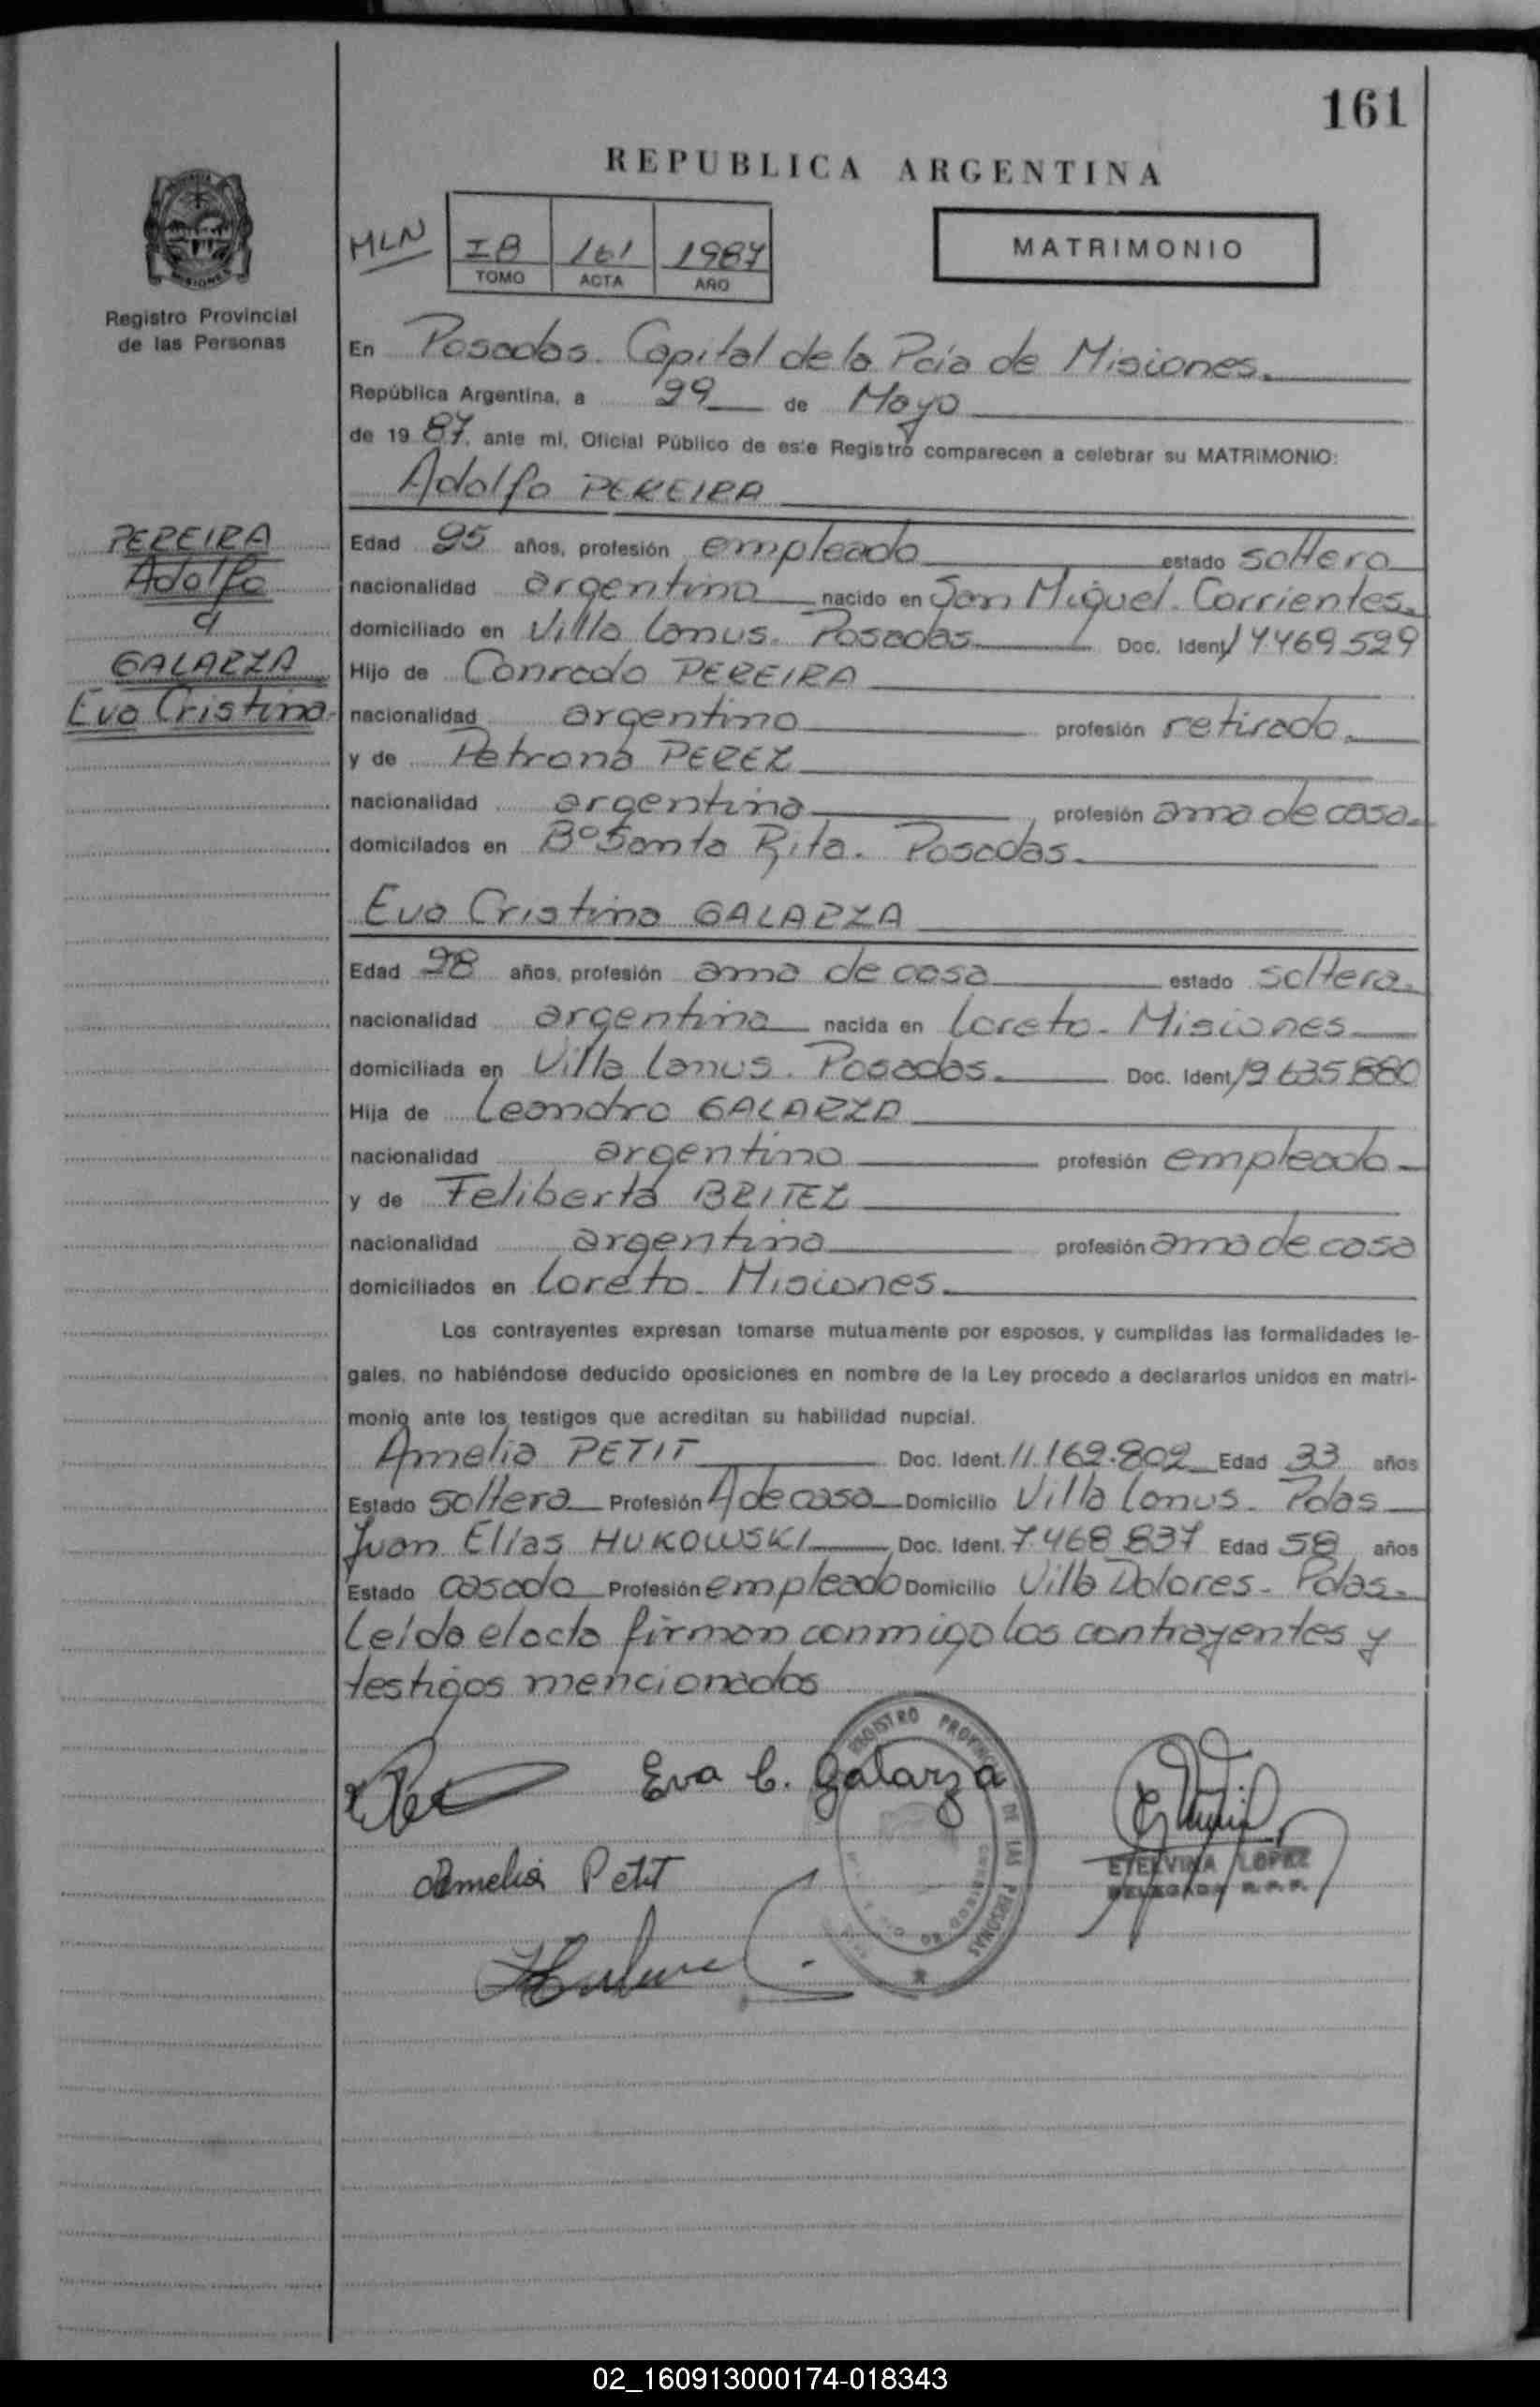 161
REPUBLICA ARGENTINA
MISIONES
Registro Provincial
de las Personas
MLN
I B 161 1987
TOMO ACTA AÑO
MATRIMONIO
En Posadas. Capital de la Pcia de Misiones.
República Argentina, a 22 de Mayo
de 19 87, ante mi, Oficial Público de este Registro comparecen a celebrar su MATRIMONIO:
Adolfo PEREIRA
PEREIRA
Adolfo
GALARZA
Eva Cristina
Edad 25 años, profesión empleado estado soltero
nacionalidad argentino nacido en San Miguel. Corrientes.
domiciliado en Villa Lanus. Posadas Doc. Ident.
Hijo de Conrado PEREIRA
nacionalidad argentino profesión retirado.
y de Petrona PEREZ
nacionalidad argentina profesión ama de casa.
domicilados en Bº Santa Rita. Posadas.
Eva Cristina GALARZA
Edad 28 años, profesión ama de casa estado soltera.
nacionalidad argentina nacida en Loreto. Misiones
domiciliada en Villa Lanus. Posadas. Doc. Ident. 12 635.880
Hija de Leandro GALARZA
nacionalidad argentino profesión empleado
y de Feliberta BRITEZ
nacionalidad argentina profesión ama de casa
domiciliados en Loreto. Misiones.
Los contrayentes expresan tomarse mutuamente por esposos, y cumplidas las formalidades le-
gales, no habiéndose deducido oposiciones en nombre de la Ley procedo a declararlos unidos en matri-
monio ante los testigos que acreditan su habilidad nupcial.
Amelia PETIT Doc. Ident. 11.162.802 Edad 33 años
Estado soltera Profesión A de casa Domicilio Villa Lanus. Pdas
Juan Elias HUKOWSKI Doc. Ident. 7.468.837 Edad 58 años
Estado casado Profesión empleado Domicilio Villa Dolores. Pdas.
Leída el acta firman conmigo los contrayentes y
testigos mencionados
REGISTRO PROVINCIAL DE LAS PERSONAS
Eva C. Galarza
Amelia Petit
ETELVINA LOPEZ
DELEGADA R.P.P.
02_160913000174-018343